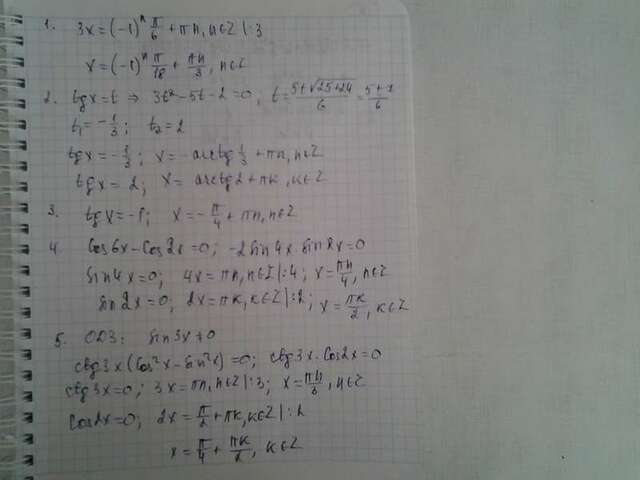 1. 3x = (-1)ⁿ π/6 + πn, n∈Z |:3
x = (-1)ⁿ π/18 + πn/3, n∈Z
2. tgx = t ⇒ 3t² - 5t - 2 = 0, t = (5 ± √25+24)/6 = (5 ± 7)/6
t₁ = -1/3; t₂ = 2
tgx = -1/3; x = -arctg 1/3 + πn, n∈Z
tgx = 2; x = arctg2 + πk, k∈Z
3. tgx = -1; x = -π/4 + πn, n∈Z
4. Cos6x - Cos2x = 0; -2sin4x sin2x = 0
sin4x = 0; 4x = πn, n∈Z |:4; x = πn/4, n∈Z
sin2x = 0; 2x = πk, k∈Z |:2; x = πk/2, k∈Z
5. ОДЗ: sin3x ≠ 0
ctg3x (Cos²x - sin²x) = 0; ctg3x · Cos2x = 0
ctg3x = 0; 3x = πn, n∈Z |:3; x = πn/3, n∈Z
Cos2x = 0; 2x = π/2 + πk, k∈Z |:2
x = π/4 + πk/2, k∈Z